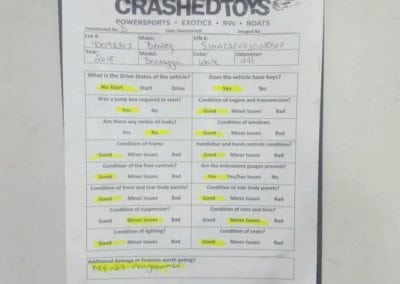 CRASHEDTOYS
POWERSPORTS • EXOTICS • RVs • BOATS
Inventoried By: Date Inventoried: Imaged By:
Lot #: Make: VIN #:
Bentley
Year: Model: Color: Odometer:
2018 Bentayga White 441
What is the Drive Status of the vehicle? Does the vehicle have keys?
No Start Start Drive Yes No
Was a jump box required to start? Condition of engine and transmission?
Yes No Good Minor Issues Bad
Are there any visible oil leaks? Condition of windows
Yes No Good Minor Issues Bad
Condition of frame Handlebar and hand controls condition?
Good Minor Issues Bad Good Minor Issues Bad
Condition of the foot controls? Are the instrument gauges present?
Good Minor Issues Bad Yes Yes/has issues No
Condition of front and rear body panels? Condition of side body panels?
Good Minor Issues Bad Good Minor Issues Bad
Condition of suspension? Condition of rims and tires?
Good Minor Issues Bad Good Minor Issues Bad
Condition of lighting? Condition of seats?
Good Minor Issues Bad Good Minor Issues Bad
Additional damage or features worth noting?
Key Not Programmed